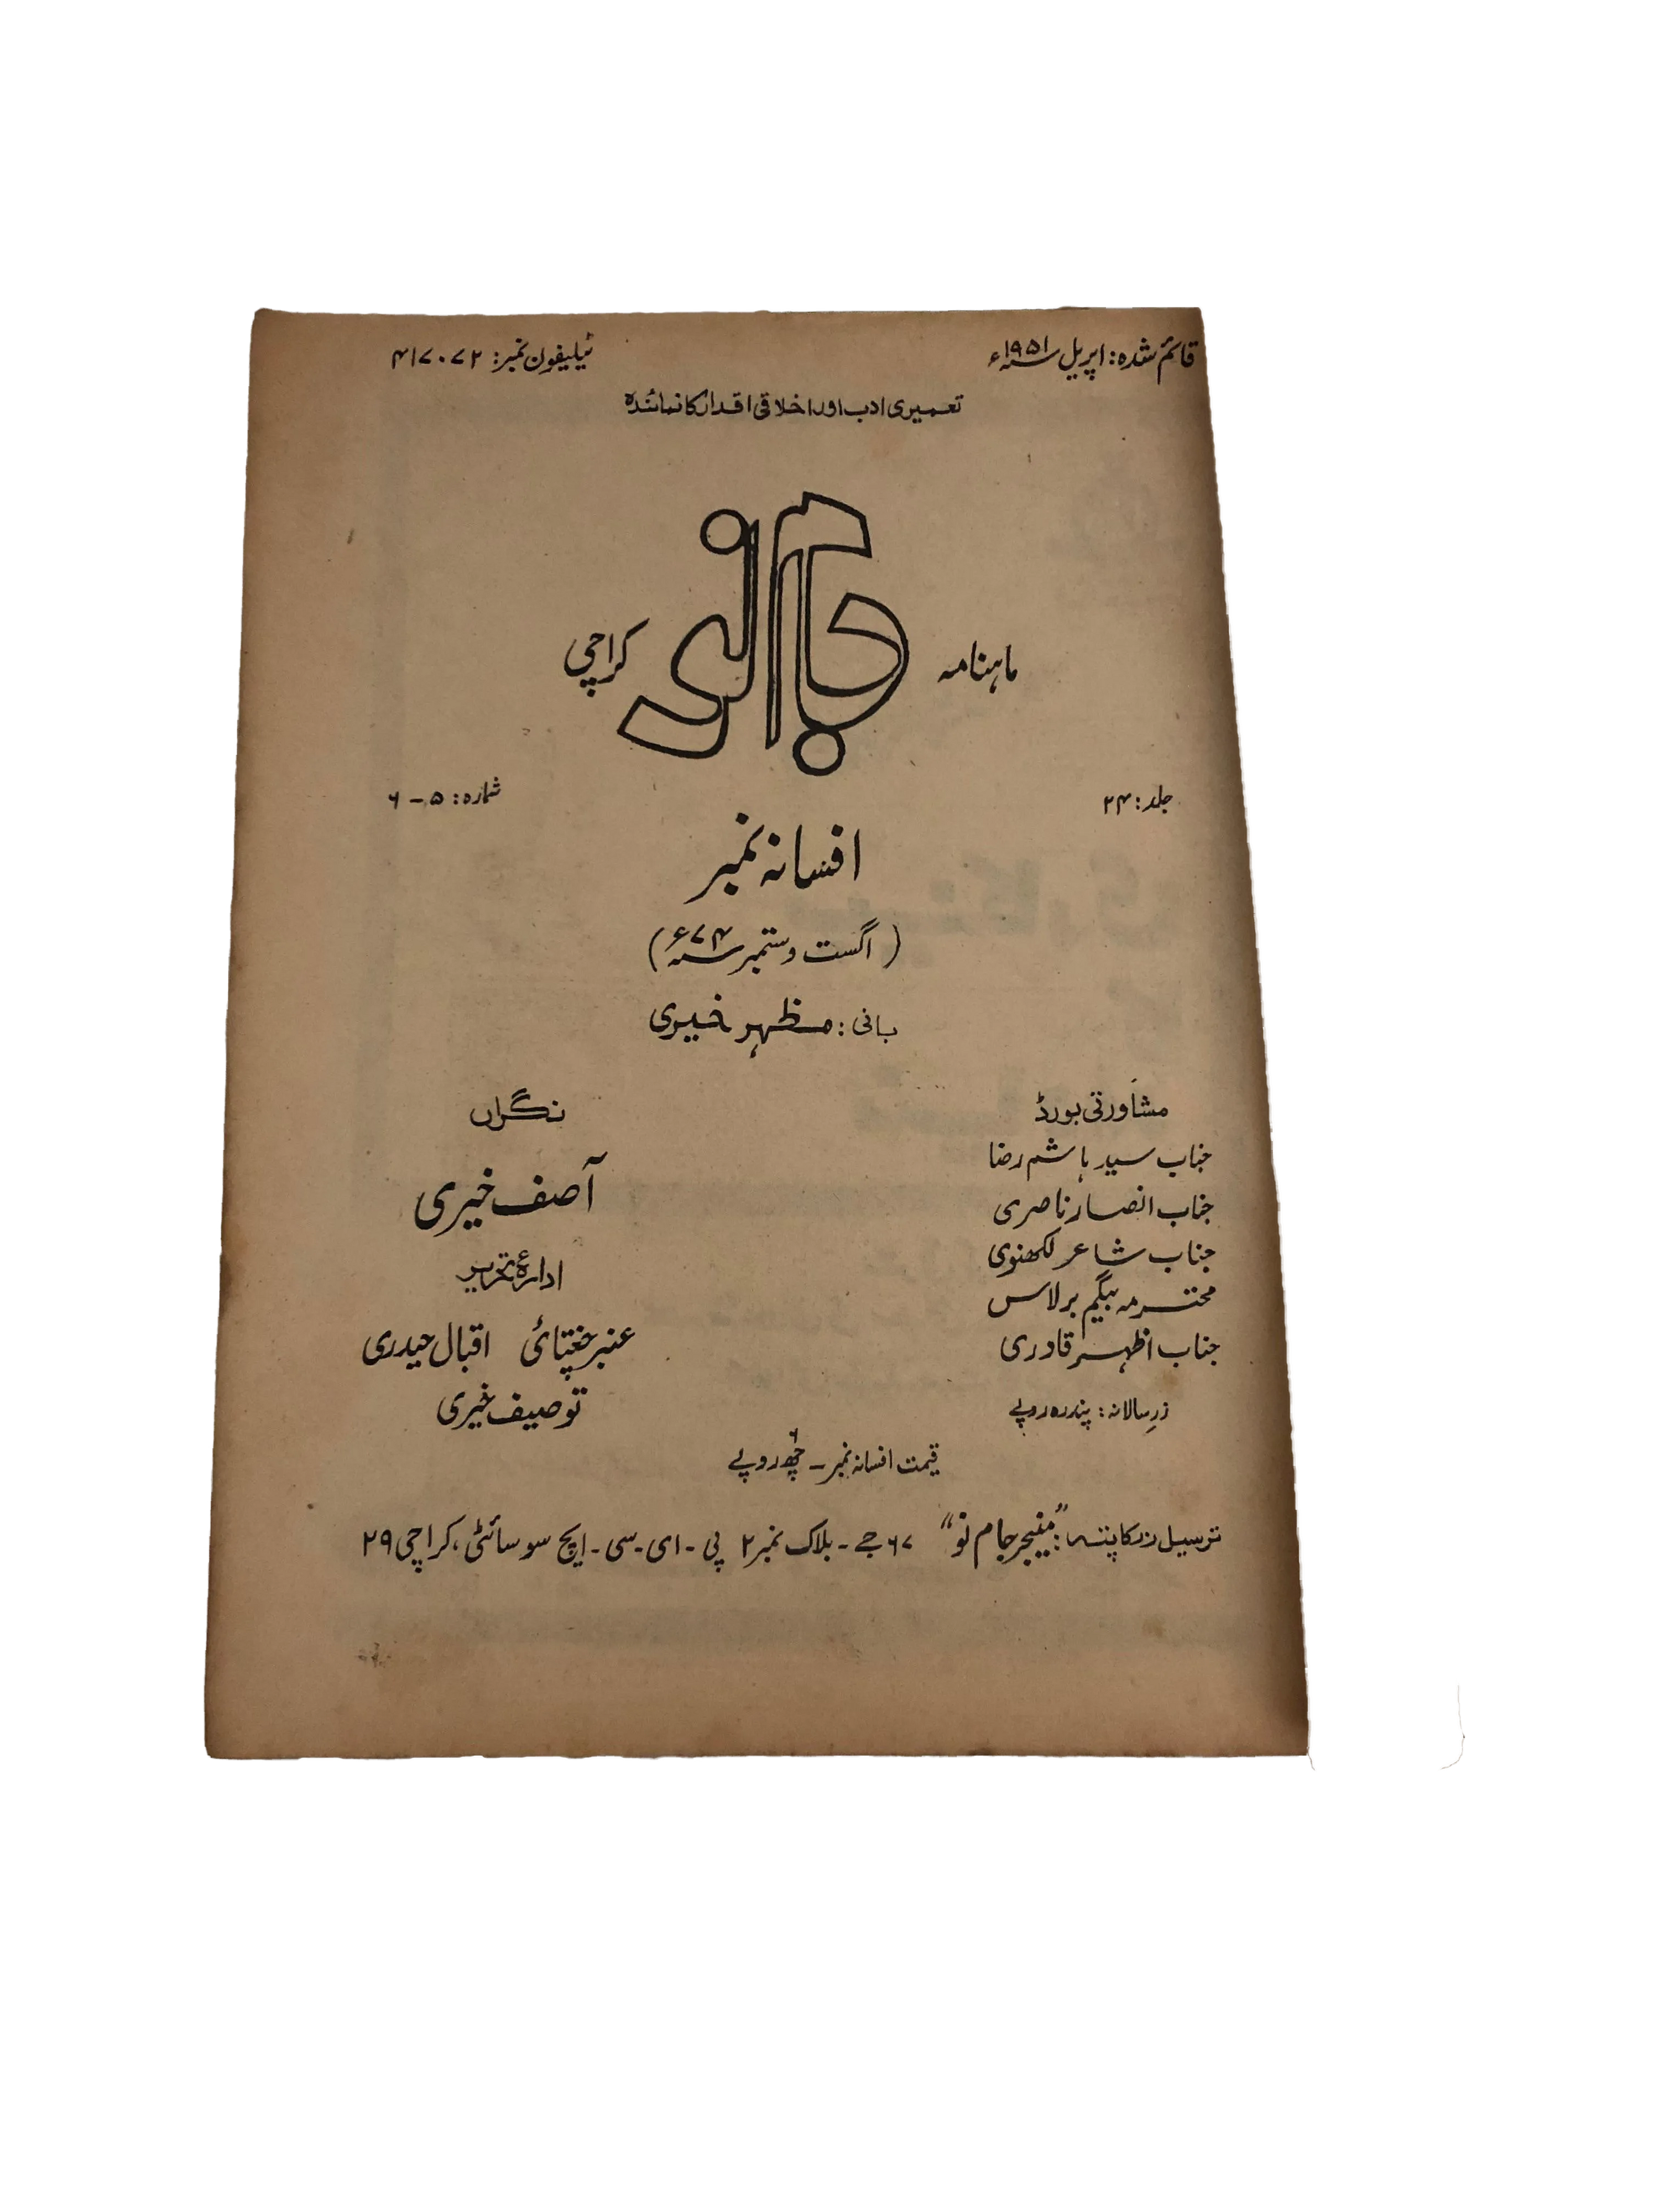 قائم شدہ: اپریل ۱۹۵۱ء
ٹیلیفون نمبر: ۴۱۷۰۷۲
تعمیری ادب اور اخلاقی اقدار کا نمائندہ
ماہنامہ جام نو کراچی
جلد: ۲۴
شمارہ: ۵ - ۶
افسانہ نمبر
(اگست و ستمبر ۷۴ء)
بانی: مظہر خیری
مشاورتی بورڈ
جناب سید ہاشم رضا
جناب انصار ناصری
جناب شاعر لکھنوی
محترمہ بیگم برلاس
جناب اظہر قادری
زرِ سالانہ: پندرہ روپے
نگراں
آصف خیری
ادارۂ تحریر
عنبر چغتائی اقبال حیدری
توصیف خیری
قیمت افسانہ نمبر - چھ روپے
ترسیل زر کا پتہ: "منیجر جام نو" ۶۷ جے - بلاک نمبر ۲ پی - ای - سی - ایچ سوسائٹی، کراچی ۲۹